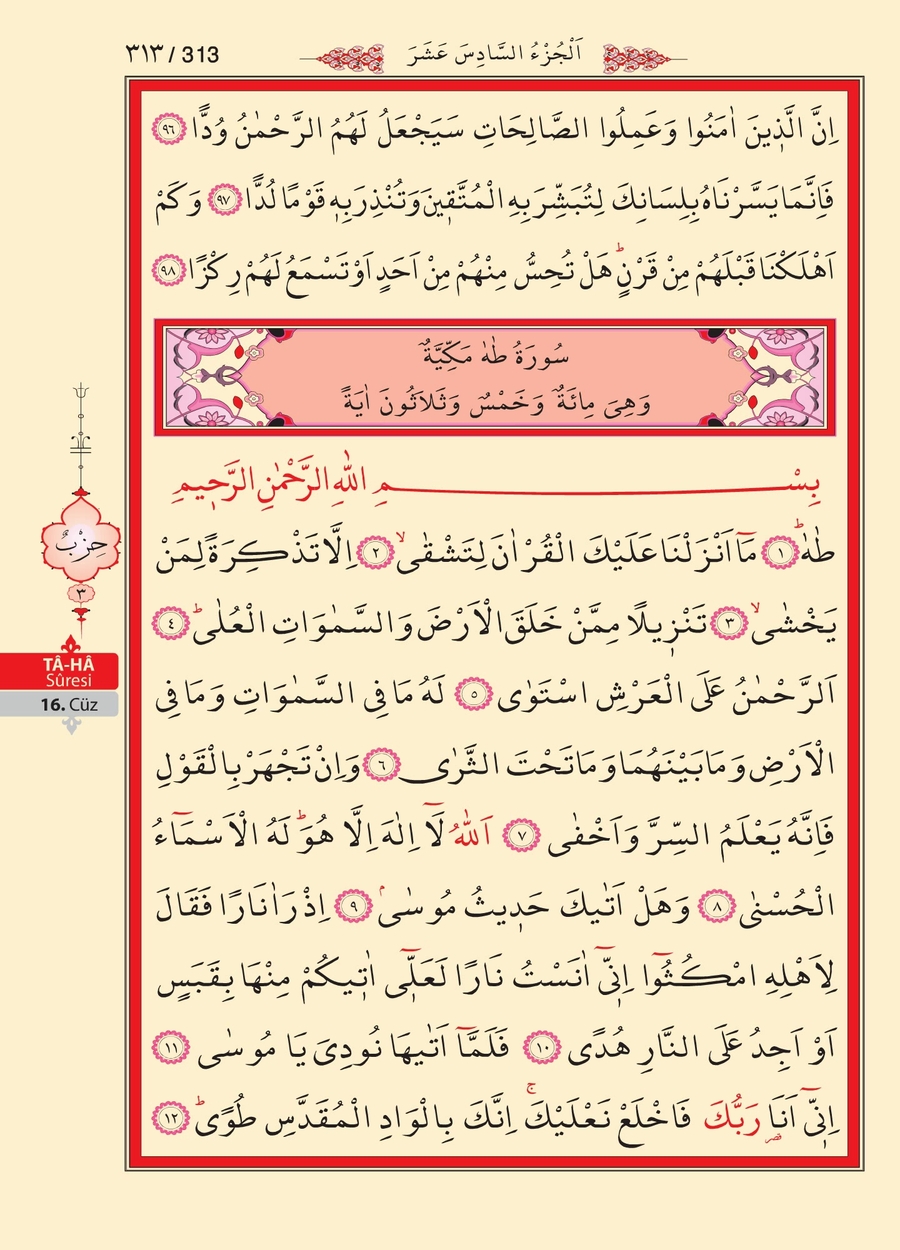 ٣١٣ / 313
اَلْجُزْءُ السَّادِسَ عَشَرَ
اِنَّ الَّذ۪ينَ اٰمَنُوا وَعَمِلُوا الصَّالِحَاتِ سَيَجْعَلُ لَهُمُ الرَّحْمٰنُ وُدًّا ﴿٩٦﴾
فَاِنَّمَا يَسَّرْنَاهُ بِلِسَانِكَ لِتُبَشِّرَ بِهِ الْمُتَّق۪ينَ وَتُنْذِرَ بِه۪ قَوْمًا لُدًّا ﴿٩٧﴾ وَكَمْ
اَهْلَكْنَا قَبْلَهُمْ مِنْ قَرْنٍۜ هَلْ تُحِسُّ مِنْهُمْ مِنْ اَحَدٍ اَوْ تَسْمَعُ لَهُمْ رِكْزًا ﴿٩٨﴾
سُورَةُ طٰهٰ مَكِّيَّةٌ
وَهِىَ مِائَةٌ وَخَمْسٌ وَثَلَاثُونَ اٰيَةً
بِسْمِ اللّٰهِ الرَّحْمٰنِ الرَّح۪يمِ
طٰهٰۜ ﴿١﴾ مَٓا اَنْزَلْنَا عَلَيْكَ الْقُرْاٰنَ لِتَشْقٰىۙ ﴿٢﴾ اِلَّا تَذْكِرَةً لِمَنْ
يَخْشٰىۙ ﴿٣﴾ تَنْز۪يلًا مِمَّنْ خَلَقَ الْاَرْضَ وَالسَّمٰوَاتِ الْعُلٰىۜ ﴿٤﴾
اَلرَّحْمٰنُ عَلَى الْعَرْشِ اسْتَوٰى ﴿٥﴾ لَهُ مَا فِى السَّمٰوَاتِ وَمَا فِى
الْاَرْضِ وَمَا بَيْنَهُمَا وَمَا تَحْتَ الثَّرٰى ﴿٦﴾ وَاِنْ تَجْهَرْ بِالْقَوْلِ
فَاِنَّهُ يَعْلَمُ السِّرَّ وَاَخْفٰى ﴿٧﴾ اَللّٰهُ لَٓا اِلٰهَ اِلَّا هُوَۜ لَهُ الْاَسْمَٓاءُ
الْحُسْنٰى ﴿٨﴾ وَهَلْ اَتٰيكَ حَد۪يثُ مُوسٰىۢ ﴿٩﴾ اِذْ رَاٰ نَارًا فَقَالَ
لِاَهْلِهِ امْكُثُٓوا اِنّ۪ٓى اٰنَسْتُ نَارًا لَعَلّ۪ٓى اٰت۪يكُمْ مِنْهَا بِقَبَسٍ
اَوْ اَجِدُ عَلَى النَّارِ هُدًى ﴿١٠﴾ فَلَمَّٓا اَتٰيهَا نُودِىَ يَا مُوسٰى ﴿١١﴾
اِنّ۪ٓى اَنَا۬ رَبُّكَ فَاخْلَعْ نَعْلَيْكَۚ اِنَّكَ بِالْوَادِ الْمُقَدَّسِ طُوًىۜ ﴿١٢﴾
قصر
حِزْبٌ
٣
TÂ-HÂ
Sûresi
16. Cüz